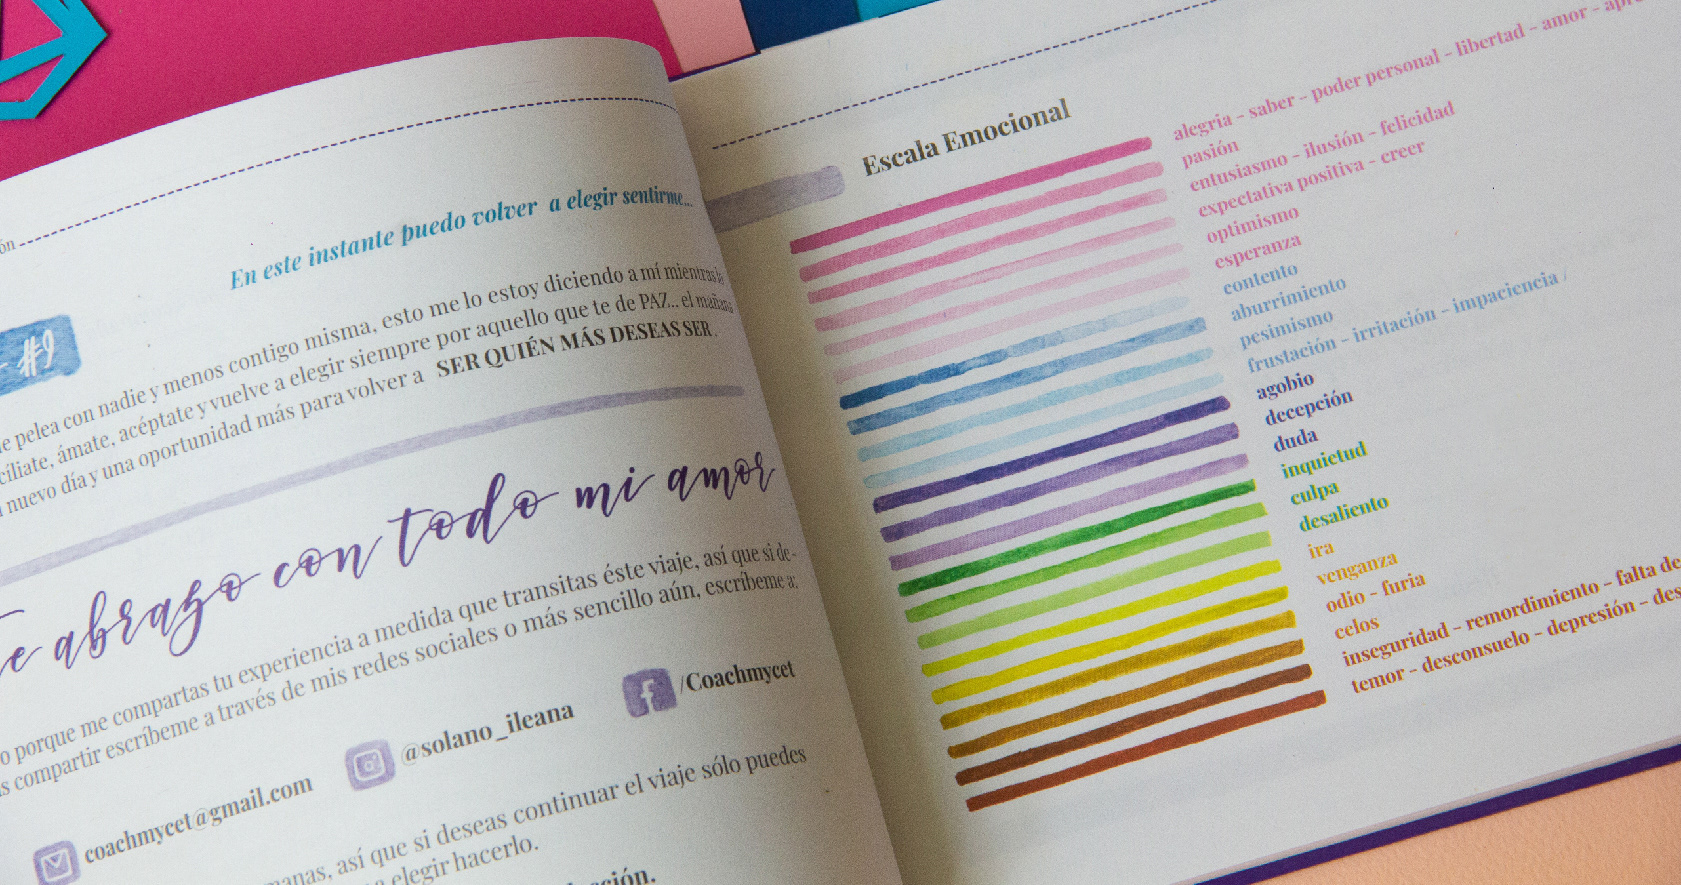 En este instante puedo volver a elegir sentirme...
#9
pelea con nadie y menos contigo misma, esto me lo estoy diciendo a mí mientras
ámate, acéptate y vuelve a elegir siempre por aquello que te de PAZ... el mañana
nuevo día y una oportunidad más para volver a SER QUIÉN MÁS DESEAS SER.
abrazo con todo mi amor
porque me compartas tu experiencia a medida que transitas éste viaje, así que si de-
compartir escríbeme a través de mis redes sociales o más sencillo aún, escríbeme a:
/Coachmycet
@solano_ileana
coachmycet@gmail.com
así que si deseas continuar el viaje sólo puedes
elegir hacerlo.
Escala Emocional
alegria - saber - poder personal - libertad - amor -
pasión
entusiasmo - ilusión - felicidad
expectativa positiva - creer
optimismo
esperanza
contento
aburrimiento
pesimismo
frustación - irritación - impaciencia /
agobio
decepción
duda
inquietud
culpa
desaliento
ira
venganza
odio - furia
celos
inseguridad - remordimiento - falta de
temor - desconsuelo - depresión -